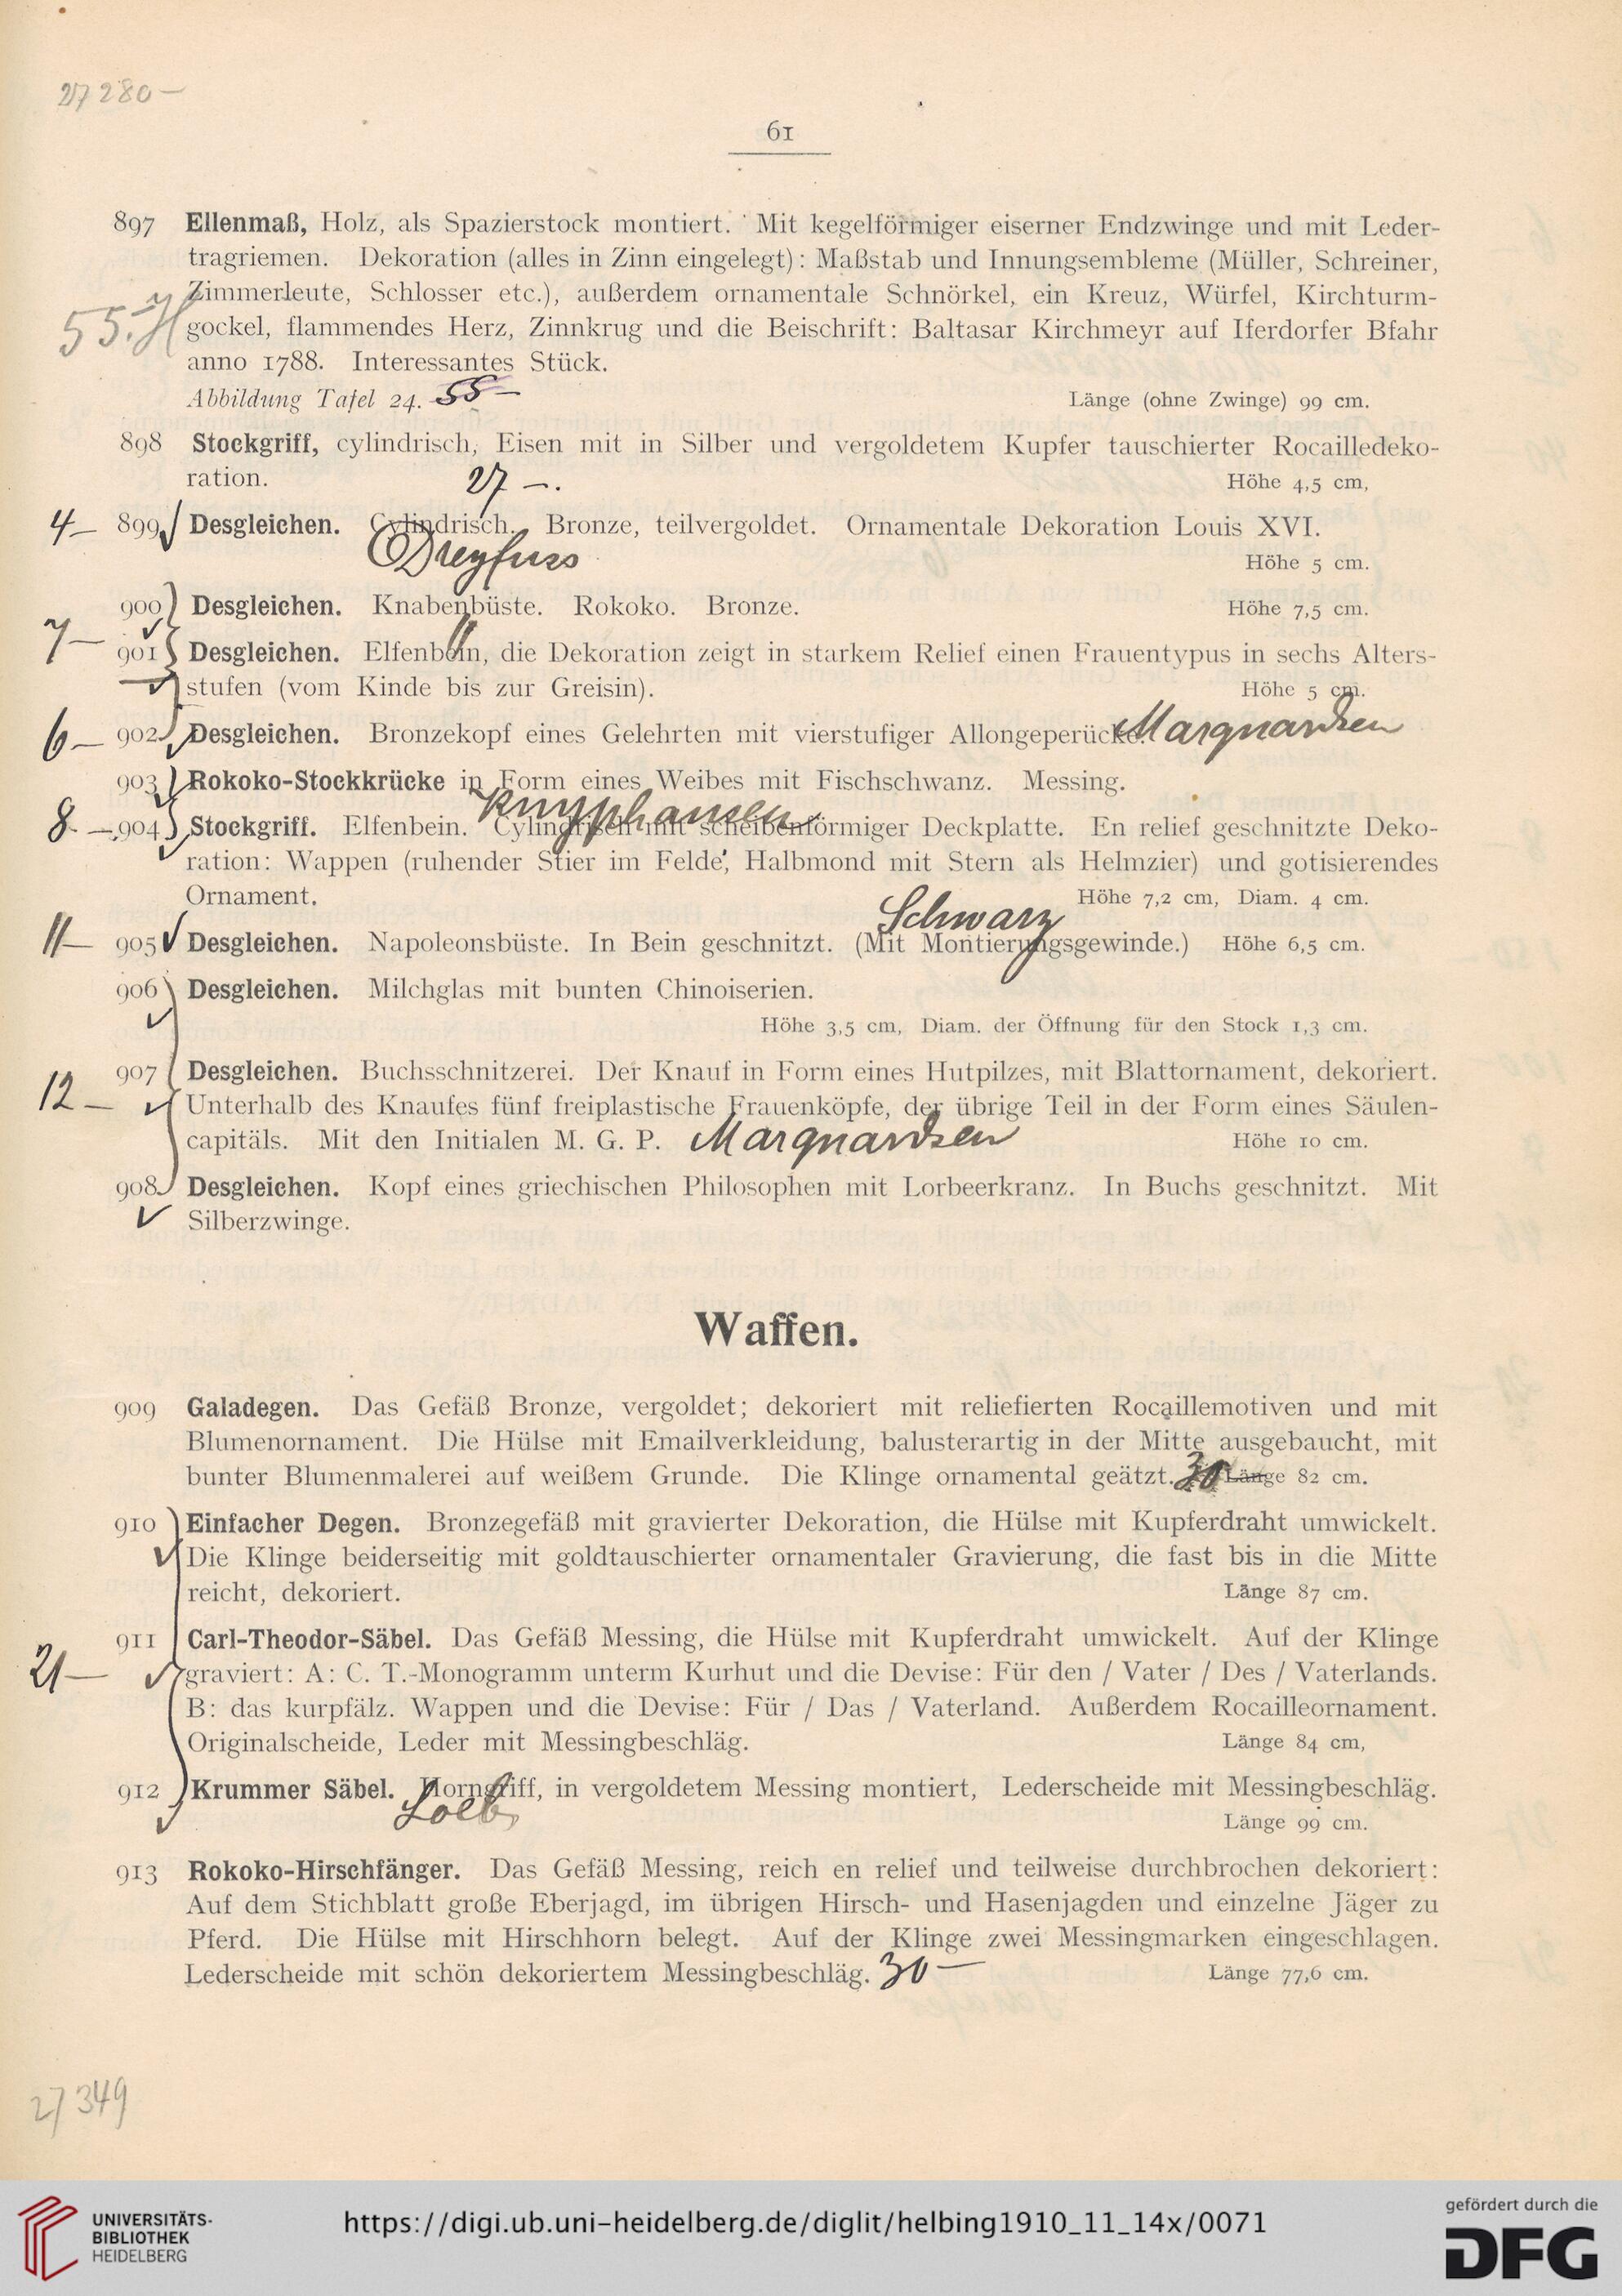 27 280 —
61
897 Ellenmaß, Holz, als Spazierstock montiert. Mit kegelförmiger eiserner Endzwinge und mit Leder-
tragriemen. Dekoration (alles in Zinn eingelegt): Maßstab und Innungsembleme (Müller, Schreiner,
Zimmerleute, Schlosser etc.), außerdem ornamentale Schnörkel, ein Kreuz, Würfel, Kirchturm-
55.- gockel, flammendes Herz, Zinnkrug und die Beischrift: Baltasar Kirchmeyr auf Iferdorfer Bfahr
anno 1788. Interessantes Stück.
Abbildung Tafel 24. 55 — Länge (ohne Zwinge) 99 cm.
898 Stockgriff, cylindrisch, Eisen mit in Silber und vergoldetem Kupfer tauschierter Rocailledeko-
ration. 27 —. Höhe 4,5 cm,
4 — 899 Desgleichen. Cylindrisch. Bronze, teilvergoldet. Ornamentale Dekoration Louis XVI.
Dreyfuss Höhe 5 cm.
900 Desgleichen. Knabenbüste. Rokoko. Bronze. Höhe 7,5 cm.
7 — 901 Desgleichen. Elfenbein, die Dekoration zeigt in starkem Relief einen Frauentypus in sechs Alters-
stufen (vom Kinde bis zur Greisin). Höhe 5 cm.
6 — 902 Desgleichen. Bronzekopf eines Gelehrten mit vierstufiger Allongeperücke. Marquardsen
903 Rokoko-Stockkrücke in Form eines Weibes mit Fischschwanz. Messing.
Knyphausen
8. — 904 Stockgriff. Elfenbein. Cylindrisch mit scheibenförmiger Deckplatte. En relief geschnitzte Deko-
ration: Wappen (ruhender Stier im Felde, Halbmond mit Stern als Helmzier) und gotisierendes
Ornament. Höhe 7,2 cm, Diam. 4 cm.
Schwarz
11 — 905 Desgleichen. Napoleonsbüste. In Bein geschnitzt. (Mit Montierungsgewinde.) Höhe 6,5 cm.
906 Desgleichen. Milchglas mit bunten Chinoiserien.
Höhe 3,5 cm, Diam. der Öffnung für den Stock 1,3 cm.
907 Desgleichen. Buchsschnitzerei. Der Knauf in Form eines Hutpilzes, mit Blattornament, dekoriert.
12 — Unterhalb des Knaufes fünf freiplastische Frauenköpfe, der übrige Teil in der Form eines Säulen-
capitäls. Mit den Initialen M. G. P. Marquardsen Höhe 10 cm.
908 Desgleichen. Kopf eines griechischen Philosophen mit Lorbeerkranz. In Buchs geschnitzt. Mit
Silberzwinge.
Waffen.
909 Galadegen. Das Gefäß Bronze, vergoldet; dekoriert mit reliefierten Rocaillemotiven und mit
Blumenornament. Die Hülse mit Emailverkleidung, balusterartig in der Mitte ausgebaucht, mit
bunter Blumenmalerei auf weißem Grunde. Die Klinge ornamental geätzt. 30 — Länge 82 cm.
910 Einfacher Degen. Bronzegefäß mit gravierter Dekoration, die Hülse mit Kupferdraht umwickelt.
Die Klinge beiderseitig mit goldtauschierter ornamentaler Gravierung, die fast bis in die Mitte
reicht, dekoriert. Länge 87 cm.
911 Carl-Theodor-Säbel. Das Gefäß Messing, die Hülse mit Kupferdraht umwickelt. Auf der Klinge
21 — graviert: A: C. T.-Monogramm unterm Kurhut und die Devise: Für den / Vater / Des / Vaterlands.
B: das kurpfälz. Wappen und die Devise: Für / Das / Vaterland. Außerdem Rocailleornament.
Originalscheide, Leder mit Messingbeschläg. Länge 84 cm,
912 Krummer Säbel. Horngriff, in vergoldetem Messing montiert, Lederscheide mit Messingbeschläg.
Loeb Länge 99 cm.
913 Rokoko-Hirschfänger. Das Gefäß Messing, reich en relief und teilweise durchbrochen dekoriert:
Auf dem Stichblatt große Eberjagd, im übrigen Hirsch- und Hasenjagden und einzelne Jäger zu
Pferd. Die Hülse mit Hirschhorn belegt. Auf der Klinge zwei Messingmarken eingeschlagen.
Lederscheide mit schön dekoriertem Messingbeschläg. 30 — Länge 77,6 cm.
27 349
UNIVERSITÄTS-
BIBLIOTHEK
HEIDELBERG
https://digi.ub.uni-heidelberg.de/diglit/helbing1910_11_14x/0071
gefördert durch die
DFG